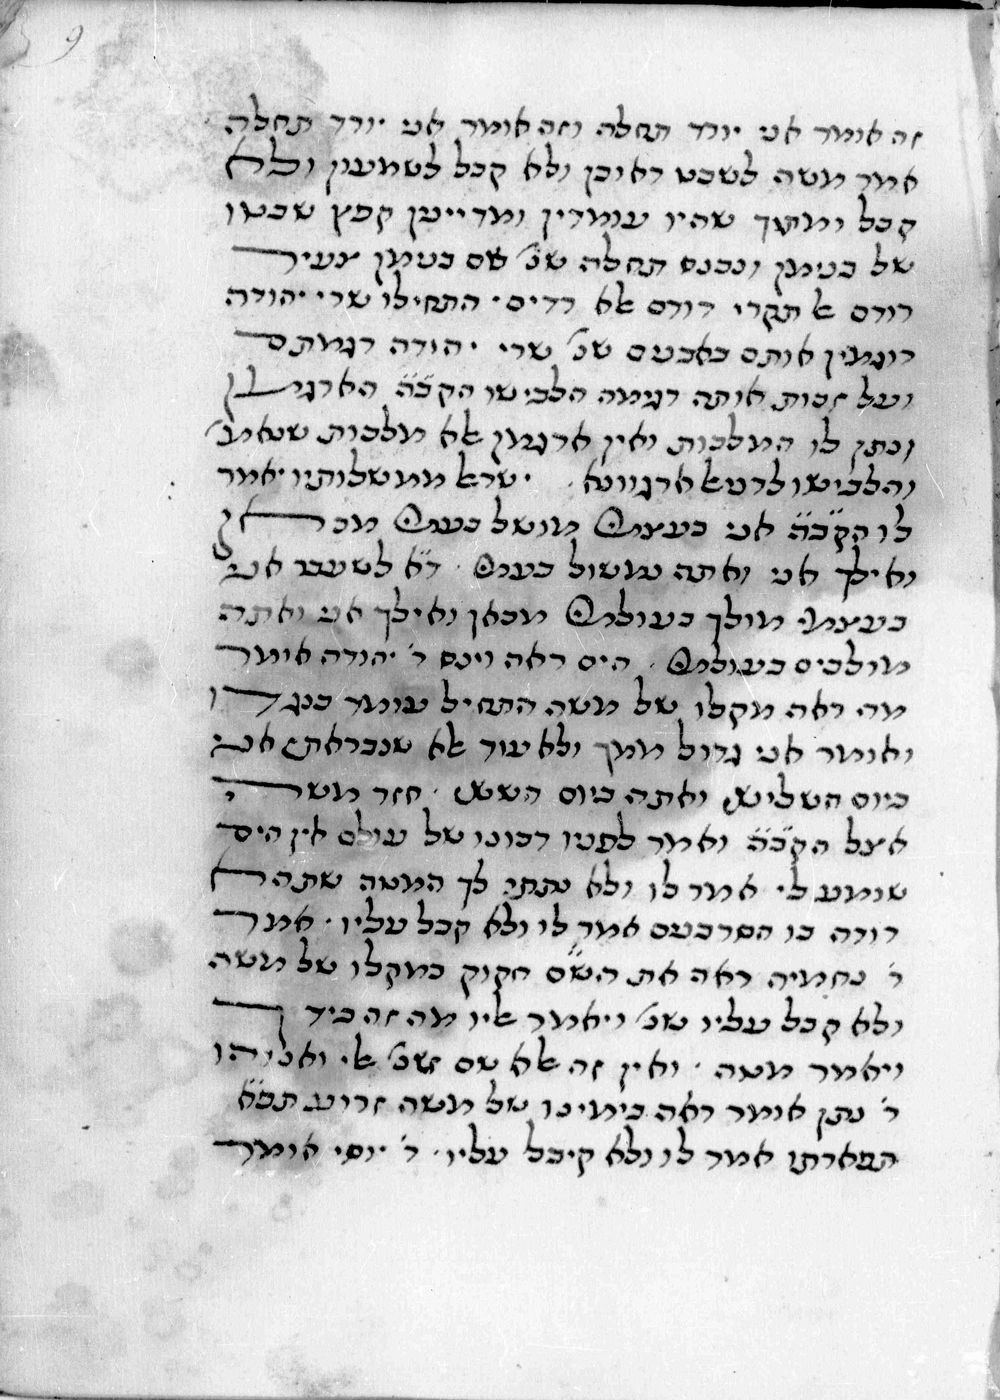 9
זה אומר אני יורד תחלה וזה אומר אני יורד תחלה
אמר משה לשבט ראובן ולא קבל לשמעון ולא
קבל ומתוך שהיו עומדין ומדיינין קפץ שבטו
של בנימין ונכנס תחלה שנ׳ שם בנימין צעיר
רודם אל תקרי רודם אלא רד ים · התחילו שרי יהודה
רוגמין אותם באבנים שנ׳ שרי יהודה רגמתם
ועל זכות אותה רגימה הלבישו הקב״ה הארגמן
ונתן לו המלכות ואין ארגמן אלא מלכות שנאמ׳
והלבישו לדניאל ארגוונא · ישראל ממשלותיו אמר
לו הקב״ה אני בעצמי מושל בעמי מכאן
ואילך אני ואתה נמשול בעמי · ד״א לשעבר אני
בעצמי מולך בעולמי מכאן ואילך אני ואתה
מולכים בעולמי · הים ראה וינס ר׳ יהודה אומר
מה ראה מקלו של משה התחיל עומד כנגדו
ואומר אני גדול ממך ולא עוד אלא שנבראתי אני
ביום השלישי ואתה ביום הששי · חזר משה
אצל הקב״ה ואמר לפניו רבונו של עולם אין הים
שומע לי אמר לו ולא נתתי לך המטה שתהא
רודה בו הסרבנים אמר לו ולא קבל עליו · אמר
ר׳ נחמיה ראה את הש״ם חקוק במקלו של משה
ולא קבל עליו שנ׳ ויאמר אליו מה זה בידך
ויאמר מטה · ואין זה אלא שם שנ׳ זה אלי ואנוהו
ר׳ נתן אומר ראה בימינו של משה זרוע
תפארתו אמר לו ולא קיבל עליו · ר׳ יוסי אומר